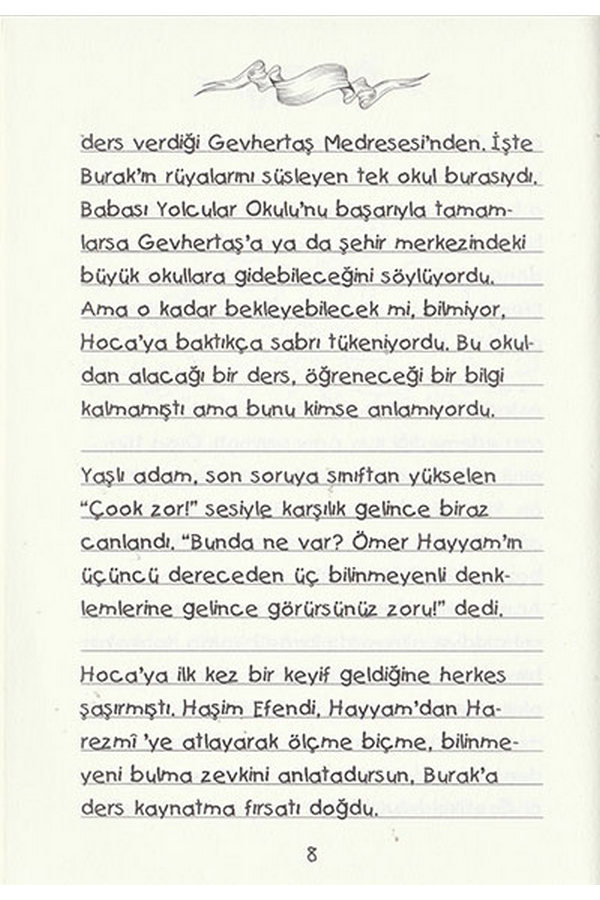 ders verdiği Gevhertaş Medresesi'nden. İşte
Burak'ın rüyalarını süsleyen tek okul burasıydı.
Babası Yolcular Okulu'nu başarıyla tamam-
larsa Gevhertaş'a ya da şehir merkezindeki
büyük okullara gidebileceğini söylüyordu.
Ama o kadar bekleyebilecek mi, bilmiyor,
Hoca'ya baktıkça sabrı tükeniyordu. Bu okul-
dan alacağı bir ders, öğreneceği bir bilgi
kalmamıştı ama bunu kimse anlamıyordu.
Yaşlı adam, son soruya sınıftan yükselen
"Çook zor!" sesiyle karşılık gelince biraz
canlandı. "Bunda ne var? Ömer Hayyam'ın
üçüncü dereceden üç bilinmeyenli denk-
lemlerine gelince görürsünüz zoru!" dedi.
Hoca'ya ilk kez bir keyif geldiğine herkes
şaşırmıştı. Haşim Efendi, Hayyam'dan Ha-
rezmî 'ye atlayarak ölçme biçme, bilinme-
yeni bulma zevkini anlatadursun, Burak'a
ders kaynatma fırsatı doğdu.
8